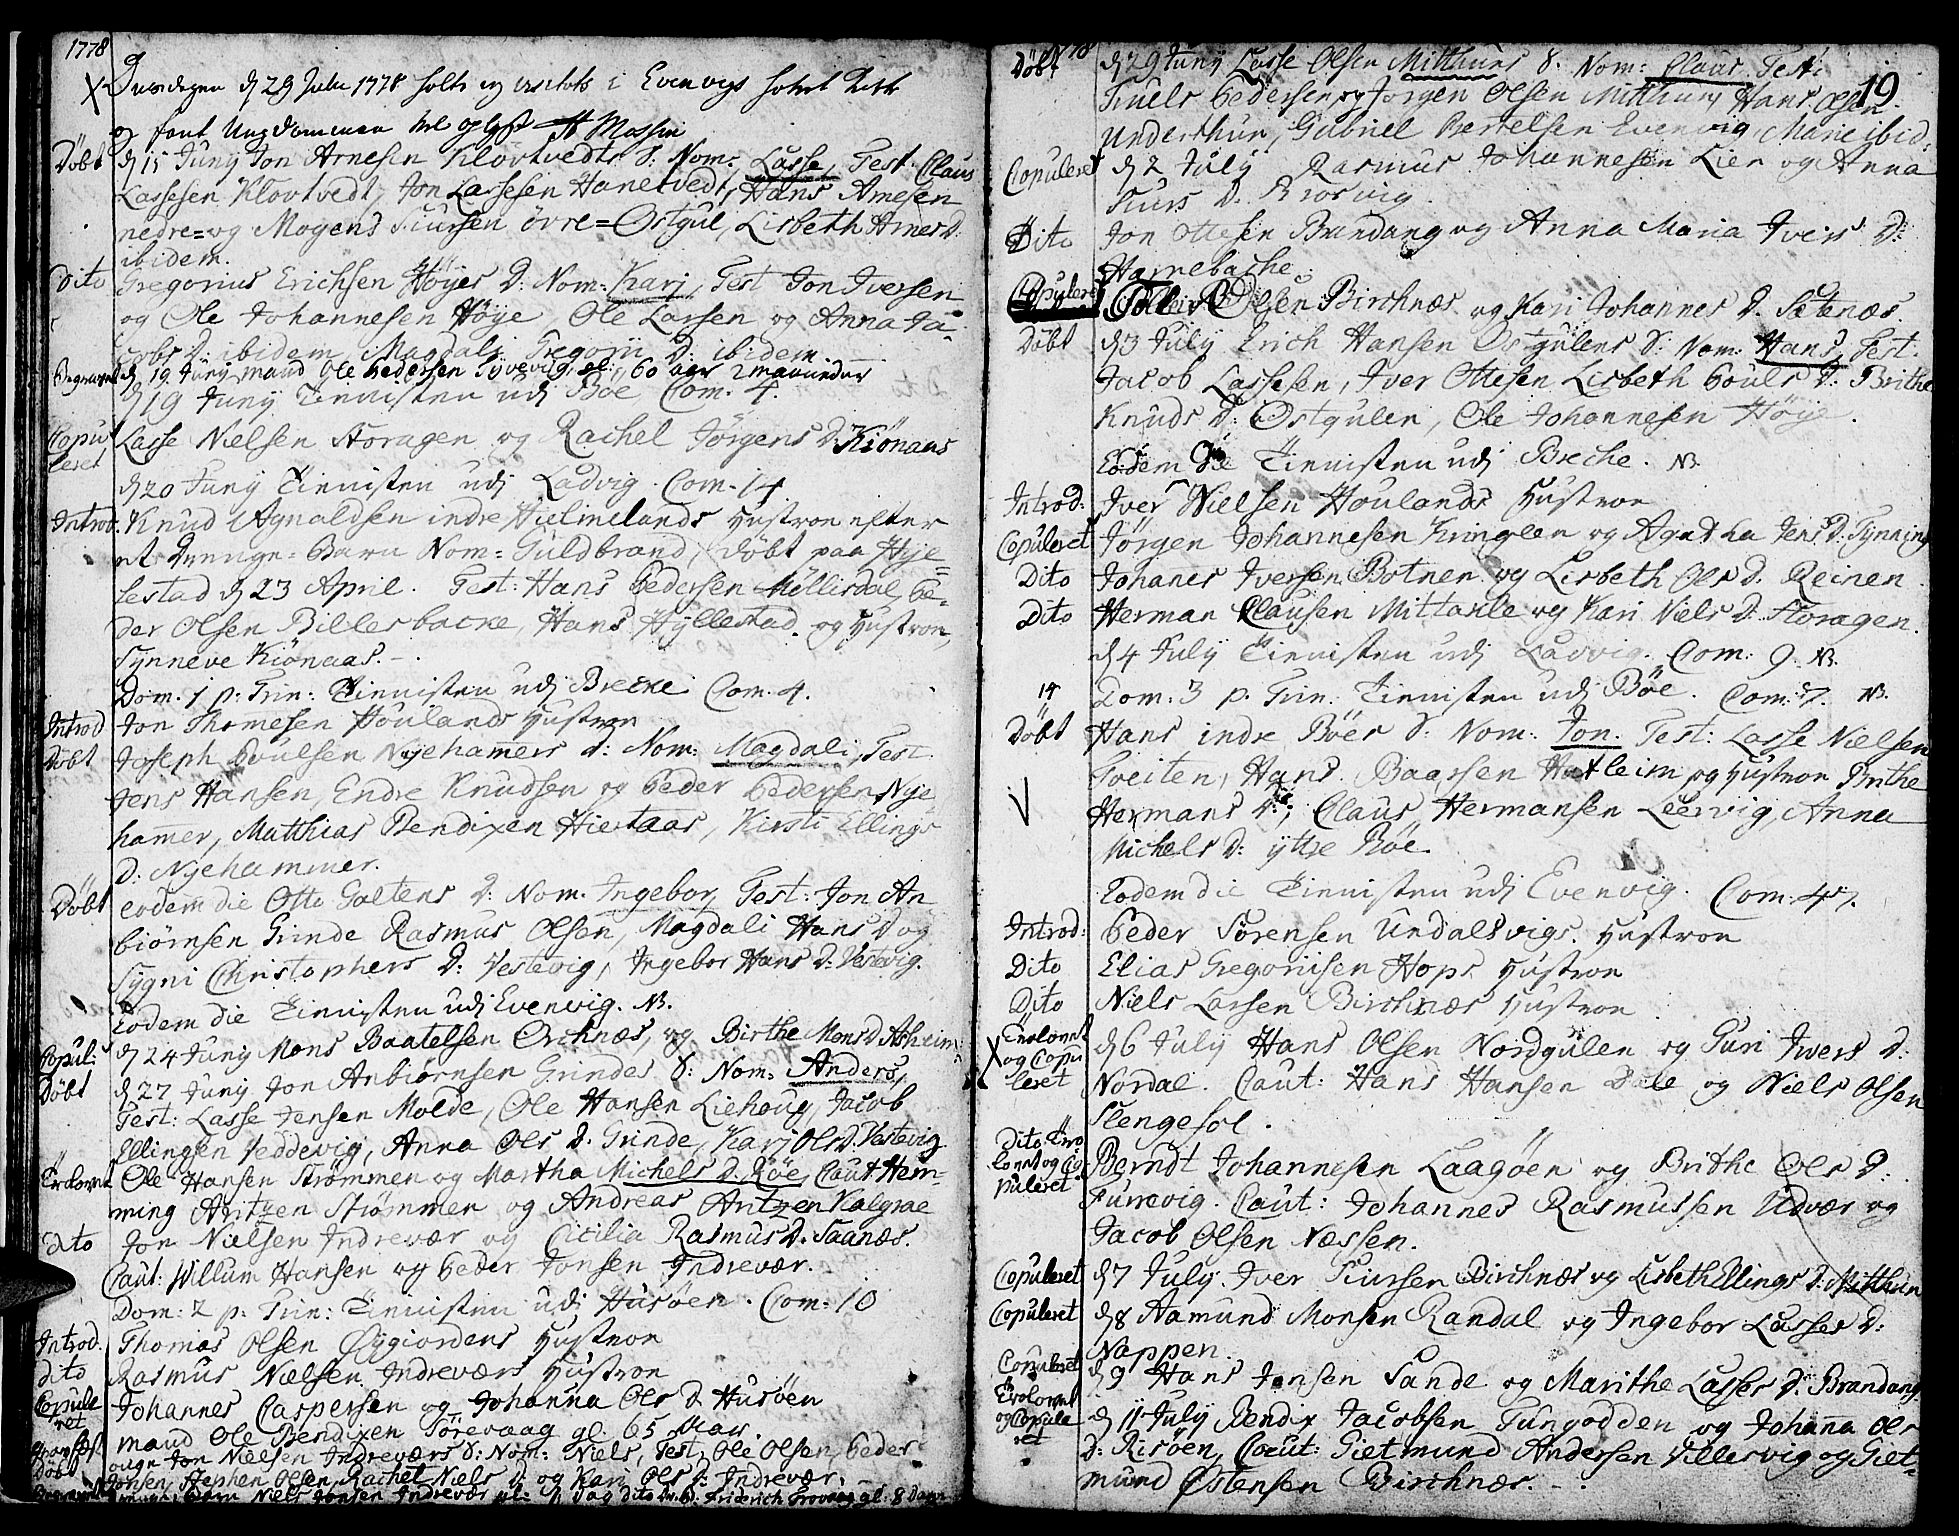 1778
d 29 Julii 1778 holt ieg visitats i Evenvigs hovet Kirke
og fant Ungdommen vel oplyst
Döbt d 15 Junÿ Jon Arnesen Klovtvedts S: Nom: Lasse, Test. Claus
Lassesen Klovtvedt, Jon Lassesen Hanetvedt, Hans Arnesen
nedre= og Mogens Siursen övre=Östgul, Lisbeth Arnes D:
ibidem.
Dito Gregorius Erichsen Höÿes D: Nom: Karj, Test Jon Iversen
og Ole Johannesen Höÿe, Ole Larsen og Anna Ja-
cobs D: ibidem, Magdali Gregorii D: ibidem.
Begravet d 19 Junÿ mand Ole Pedersen gl: 60 aar 2 maaneder
d 19 Junÿ Tienisten udj Böe Com. 4.
Copu-
leret Lasse Nielsen Storagen og Rachel Jörgens D: Kiönaas
d 20 Junÿ Tienisten udj Ladvig. Com. 14
Introd. Knud Agnaldsen indre Hielmelands Hustroe efter
et Drenge=Barn Nom= Guldbrand, döbt paa Hÿe=
lestad d 23 April. Test: Hans Pedersen Möllisdal, Pe-
der Olsen Billesbacke, Hans Hÿllestad og Hustroe,
Sÿnneve Kiönaas.
Dom. 1 p: Trin: Tienisten udj Brecke Com. 4.
Introd Jon Thomesen Höulands Hustroe
Döbt Joseph Poulsen Nÿehamers d: Nom: Magdali, Test
Jens Hansen, Endre Knudsen og Peder Pedersen Nÿe
hamer, Matthias Bendixen Hiertaas, Kirsti Ellings
D: Nÿehammer.
Döbt eodem die Otto Galtens D: Nom. Ingebor, Test: Jon An
biörnsen Grinde Rasmus Olsen, Magdali Hans D og
Sÿgni Christophers D: Vestevig, Ingebor Hans D: Vestevig.
Eodem die Tienisten udj Evenvig. NB.
Copul: d 24 Junÿ Mons Baatelsen Örchnæs, og Birthe Mons D Asheim
Döbt d 27 Junÿ Jon Anbiörnsen Grindes S: Nom: Anders,
Test: Lasse Jensen Molde, Ole Hansen Liehoug, Jacob
Ellingsen Veddevig, Anna Ols D. Grinde, Karj Ols D. Vestevig
Trolovet Ole Hansen Strömmen og Martha Michels D. Böe, Caut Hem-
ming Antzen Strömmen og Andreas Antzen Kalgrae
dito Jon Nielsen Indrevær og Cicilia Rasmus D. Saanæs.
Caut: Willum Hansen og Peder Jonsen Indrevær.
Dom: 2 p: Trin: Tienisten udi Husöen. Com: 10
Introd. Thomas Olsen Öÿgiordens Hustroe
dito Rasmus Nielsen Indreværs Hustroe
Copule
ret Johannes Caspersen og Johanna Ols D Husöen
mand Ole Bendixen Sörevaag gl. 65 Aar.
Döbt Jon Nielsen Indreværs S: Nom: Niels, Test, Ole Olsen, Peder
Jonsen, Stephen Olsen, Rachel Niels D: og Kari Ols D: Indrevær.
Niels Jonsen Indrevær gl: 8 Dage
1778
19
Döbt d 29 Junÿ Lasse Olsen Mitthuns S. Nom: Claus Test:
Truels Pedersen og Jörgen Olsen Mitthun, Hans Olsen
Underthun, Gabriel Bertelsen Evenvig, Mari ibid.
Copuleret d 2 Julÿ Rasmus Johannesen Lien og Anna
Siurs D. Brosvig.
Dito Jon Ottesen Brandang og Anna Maria Ivers D:
Harnebache.
Copuleret Olsen Birchnæs og Kari Johannes D. Sætenæs.
Döbt d 3 Julÿ Erich Hansen Östgulens S: Nom: Hans, Test.
Jacob Lassesen, Iver Ottesen Lisbeth Pouls D: Brithe
Knuds D: Östgulen, Ole Johannesen Höÿe.
Eodem Die Tienisten udj Breche. NB.
Introd: Iver Nielsen Houlands Hustroe
Copuleret Jörgen Johannesen Kringlen og Agatha Jens D. Tÿnning
Dito Johanes Iversen Botnen og Lisbeth Ols D. Reinen.
Dito Herman Clausen Mittarle og Kari Niels D: Storagen.
d 4 Julÿ Tienisten udj Ladvig. Com: 9. NB.
Dom: 3 p. Trin: Tienisten udj Böe. Com: 7. NB.
Döbt Hans indre Böes S: Nom: Jon. Test: Lasse Nielsen
Tveiten, Hans Baarsen Hatleim og Hustroe Brithe
Hermans D:, Claus Hermansen Leervig, Anna
Michels D: ÿttre Böe.
Eodem die Tienisten udj Evenvig. Com: 47.
Introd: Peder Sörensen Undalsvigs Hustroe
Dito Elias Gregoriisen Hops Hustroe
Dito Niels Larsen Birchnæs Hustroe
Trolovet
og Copu
leret d 6 Julÿ Hans Olsen Nordgulen og Guri Ivers D:
Nordal. Caut: Hans Hansen Dale og Niels Olsen
Slengesol.
Dito Tro
lovet og Co
puleret Berndt Johannesen Laagöen og Brithe Ols D:
Furrevig. Caut: Johannes Rasmussen Udvær og
Jacob Olsen Næssen.
Copuleret d 7 Julÿ. Iver Siursen Birchnæs og Lisbeth Ellings D: Mitthun
Copuleret d 8 Aamund Monsen Randal og Ingebor Lasses D:
Nappen.
Copuleret d 9 Hans Jensen Sande og Marithe Lasses D: Brandang
Trolovet
og Copule
ret d 11 Julÿ Bendix Jacobsen Tungodden og Johanna Ols
D: Risöen, Caut: Gietmund Andersen Villesvig og Giet-
mund Östensen Birchnæs.